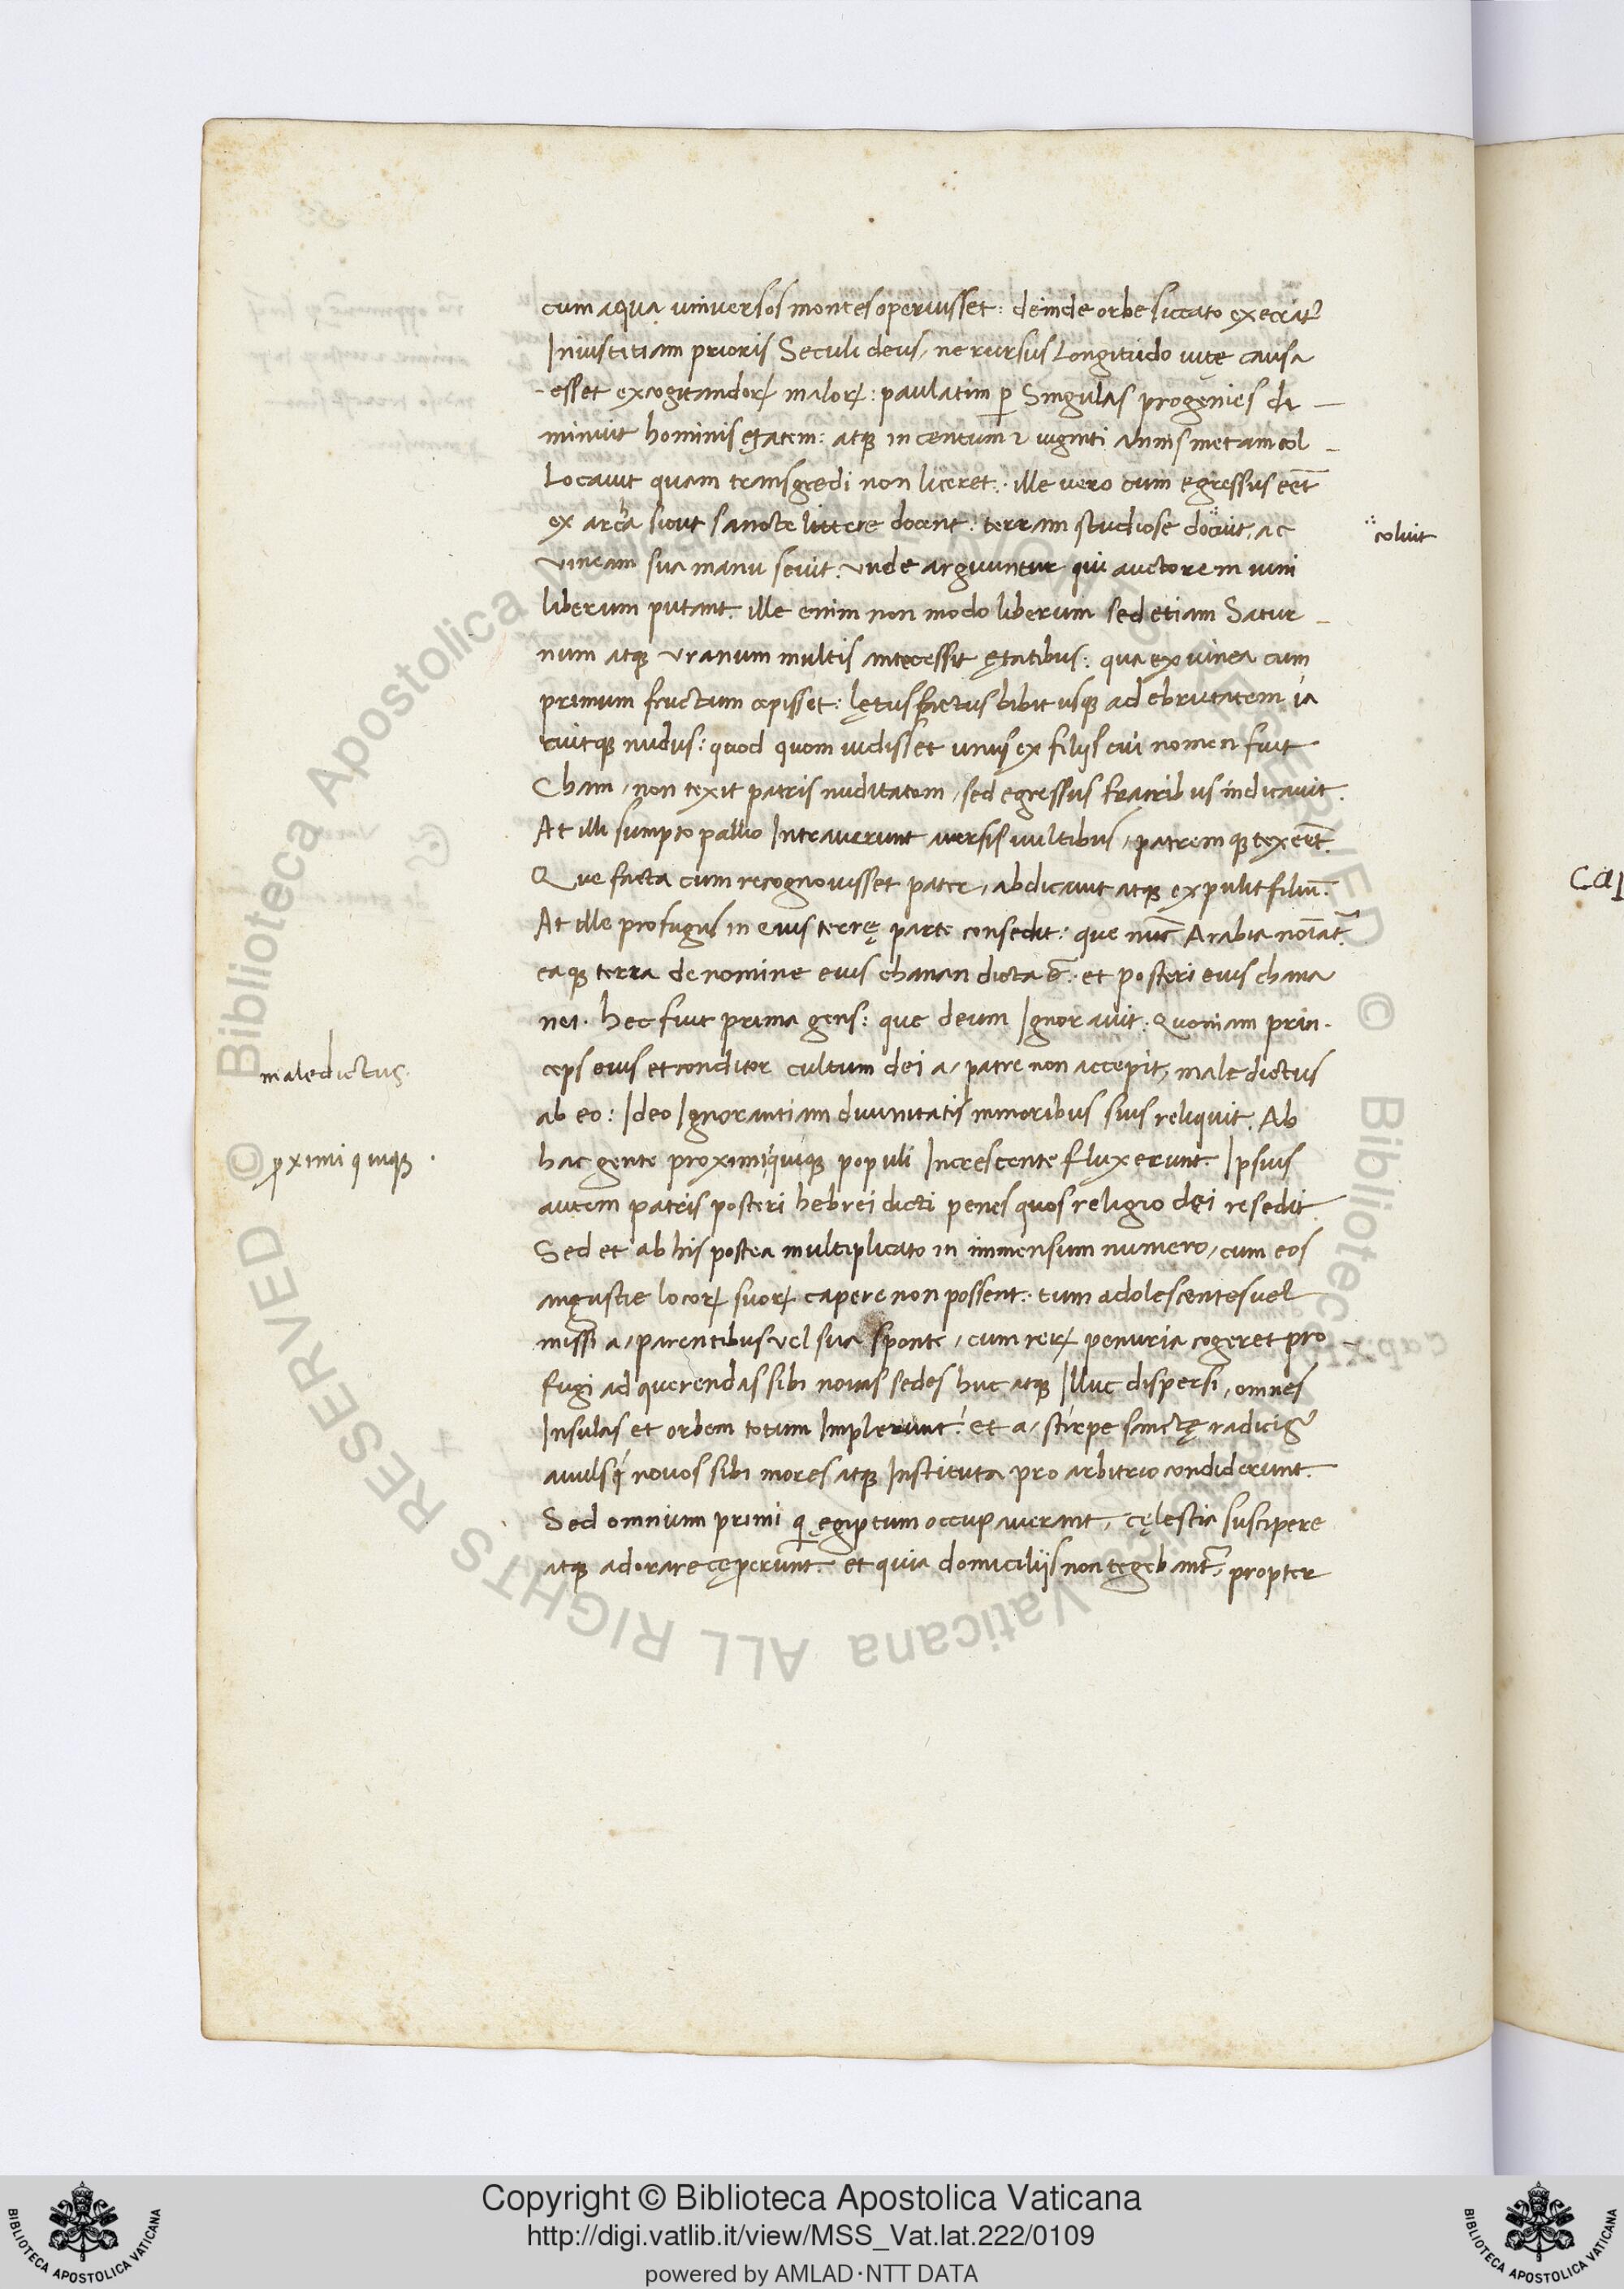 cum aqua universos montes operuisset: deinde orbe siccato execratꝰ
Iniustitiam prioris Seculi deus, ne rursus Longitudo uitę causa
esset excogitandoꝝ maloꝝ: paulatim ꝑ Singulas progenies di
minuit hominis ętatem: atqꝫ in centum ⁊ uiginti Annis metam col
Locauit quam transgredi non liceret. ille uero cum egressus eēt
ex archa sicut sancte littere docent: terram studiose docuit, ac
vineam sua manu seuit. vnde arguuntur qui auctorem uini
liberum putant. ille enim non modo liberum sed etiam Satur
num atqꝫ vranum multis antecessit ętatibus: qua ex uinea cum
primum fructum cepisset: lętus factus bibit usqꝫ ad ebrietatem ia
cuitqꝫ nudus: quod quom uidisset unus ex filijs cui nomen fuit
Cham, non texit patris nuditatem, sed egressus fratribus indicauit.
At illi sumpto pallio Intrauerunt auersis uultibus, patremqꝫ texeēt.
Que facta cum recognouisset pater, abdicauit atqꝫ expulit filiū.
At ille profugus in eius terrę parte consedit: que nūc Arabia noīat᷑.
eaqꝫ terra de nomine eius chanan dicta ē. et posteri eius chana
nei. hec fuit prima gens: que deum Ignorauit: Quoniam prin
ceps eius et conditor cultum dei a, patre non accepit, maledictus
ab eo: Ideo Ignorantiam diuinitatis minoribus suis reliquit. Ab
hac gente proximi quiqꝫ populi Increscente fluxerunt. Ipsius
autem patris posteri hebrei dicti penes quos religio dei resedit
Sed et ab his postea multiplicato in immensum numero, cum eos
angustie locoꝝ suoꝝ capere non possent. tum adolescentes uel
missi a, parentibus uel sua sponte, cum reꝝ penuria cogeret pro
fugi ad querendas sibi nouas sedes huc atqꝫ Illuc dispersi, omnes
Insulas et orbem totum Implerunt: et a, stirpe sanctę radicisꝰ
auulsi nouos sibi mores atqꝫ Instituta pro arbitrio condiderunt.
Sed omnium primi qi ęgiptum occupauerant, cęlestia suscipere
atqꝫ adorare cęperunt. et quia domicilijs non tegebant᷑, propter
coluit
maledictus.
ꝓximi quiqꝫ.
cap
Copyright © Biblioteca Apostolica Vaticana
http://digi.vatlib.it/view/MSS_Vat.lat.222/0109
powered by AMLAD·NTT DATA
BIBLIOTECA APOSTOLICA VATICANA
BIBLIOTECA APOSTOLICA VATICANA
© Biblioteca Apostolica Vaticana ALL RIGHTS RESERVED